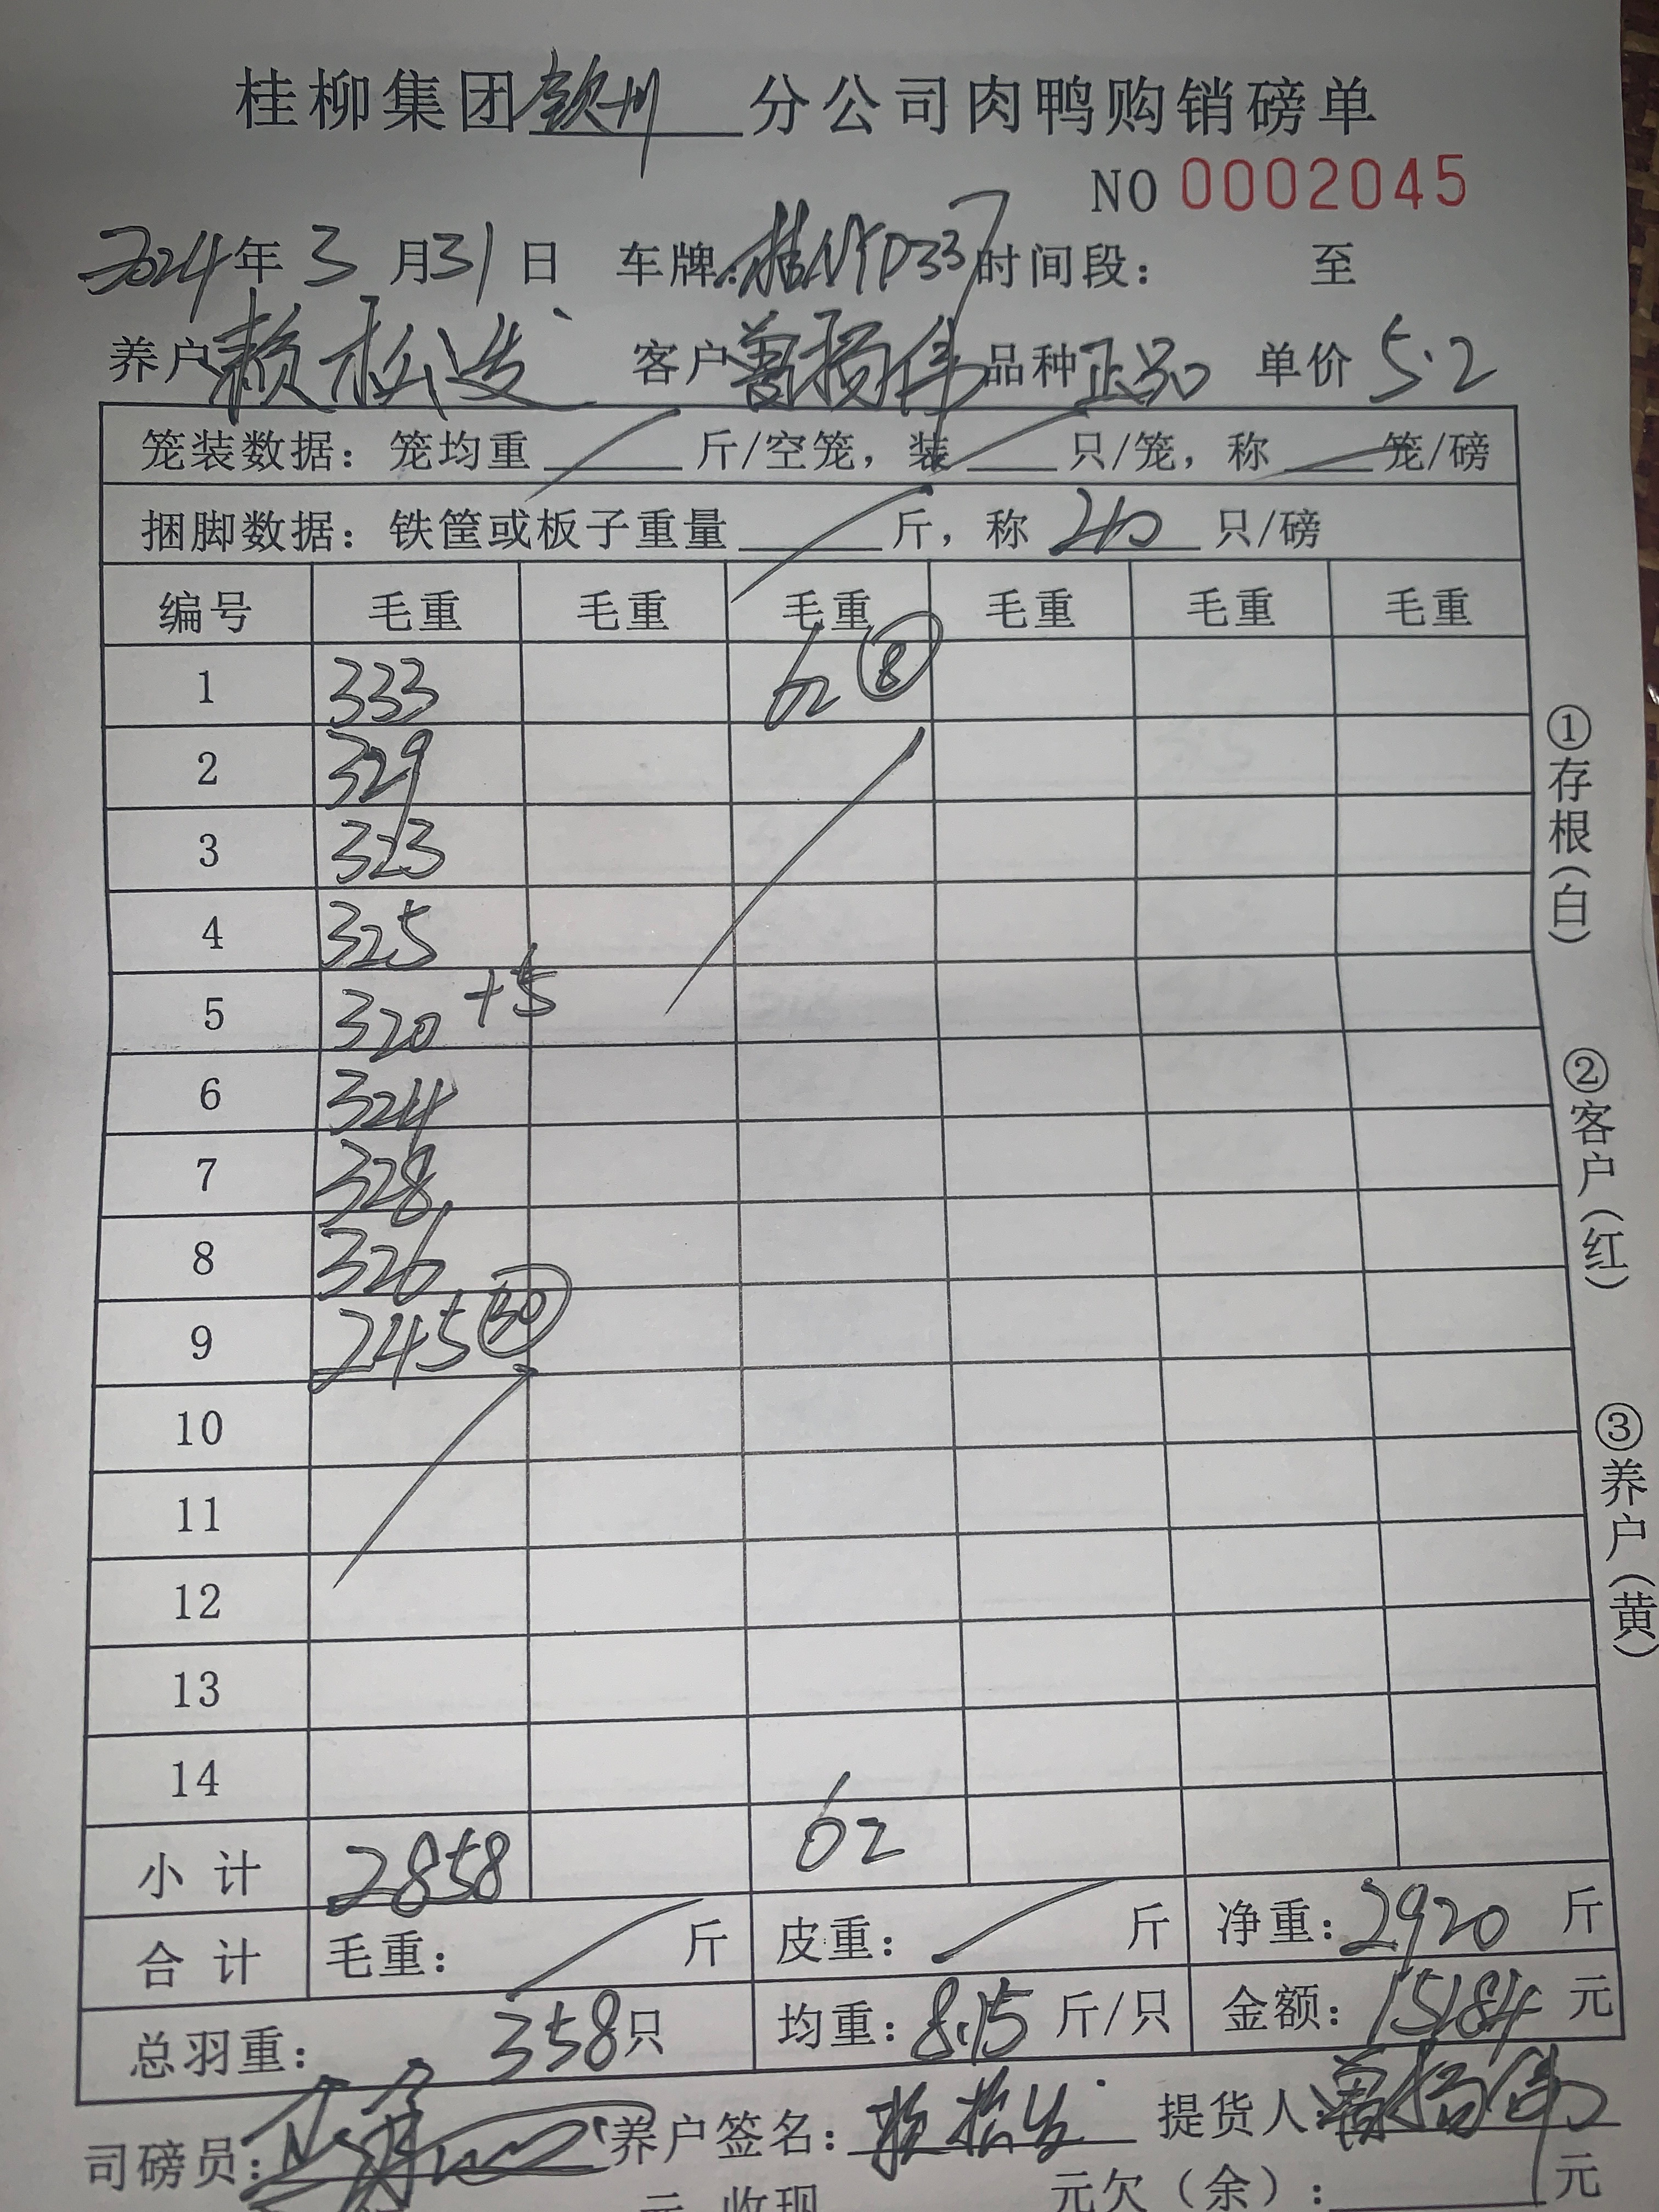 桂柳集团钦州分公司肉鸭购销磅单
NO 0002045
2024年3月31日 车牌:桂NYD337 时间段: 至
养户 赖松送 客户 曾扬伟 品种 正品 单价 5.2
笼装数据:笼均重 斤/空笼,装 只/笼,称 笼/磅
捆脚数据:铁筐或板子重量 斤,称 40 只/磅
编号 毛重 毛重 毛重 毛重 毛重 毛重
1 333 62 ⑧
2 329
3 323
4 325
5 320 +5
6 324
7 328
8 326
9 245 ㉚
10
11
12
13
14
小计 2858 62
合计 毛重: 斤 皮重: 斤 净重:2920 斤
总羽重: 358只 均重:8.15 斤/只 金额:15184 元
司磅员: 养户签名: 提货人:曾扬伟
元 收现 元欠(余): 元
①存根(白)
②客户(红)
③养户(黄)